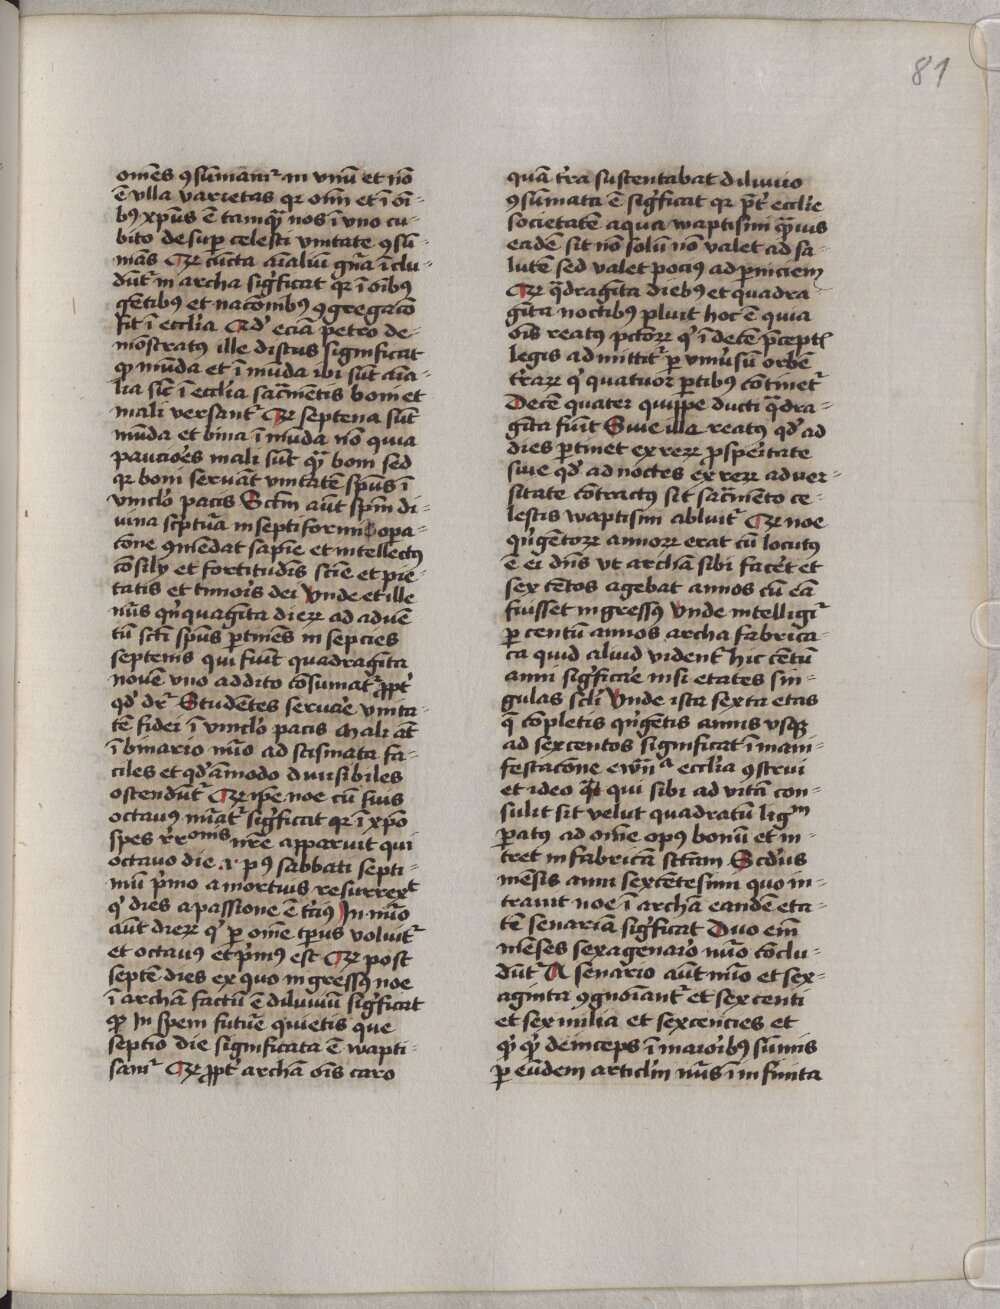 81
om̄es ꝯsūmant᷑ in vnū et nō
ē vlla varietas qꝛ om̄i et ī oī-
bꝰ xp̄us ē tamqᷓ nos ī vno cu-
bito desuꝑ celesti vnitate ꝯsū-
mās Qꝛ cūcta aīaliū gn̄a īclu-
dūt᷑ in archa sigͥficat qꝛ ī oībꝰ
gētibꝰ et nacōnibꝰ ꝯgregacō
fit ī ecclīa Qd̕ eciā petro de-
mōstratꝰ ille discus significat
qꝫ mūda et ī mūda ibi sūt aīa-
lia sic̄ ī ecclīa sacͣmētis boni et
mali versant᷑ Qꝛ septena sūt
mūda et bina ī mūda nō quia
pauciōes mali sūt qᷓ boni sed
qꝛ boni seruāt vnitatē sp̄us ī
vincl̄o pacis Sctm̄ aūt sp̄m di-
uina sc̕ptūa in septiformi opa-
cōne ꝯmēdat sapīe et intellectꝰ
cōsily et fortitudīs scīe et pie-
tatis et timoīs dei Vnde et ille
nūs qͥnquagīta dieꝝ ad aduē-
tū sctī sp̄us ꝑtinēs in sepcies
septenis qui fiūt quadragīta
nouē vno addito cōsumat᷑ ꝓpt̕
qd̕ dr̄ Studētes seruaͤe vnita-
tē fidei ī vincl̄o pacis Mali āt
ī binario nūo ad scismata fa-
ciles et qd̕āmodo diuisibiles
ostendūt᷑ Qꝛ ip̄e noe cū suis
octauꝰ nūat᷑ sigͥficat qꝛ ī xp̄o
spes rr̄onis nr̄e apparuit qui
octauo die .i. pꝰ sabbati septi-
mū pͥmo a mortuis resurrexͭ
qͥ dies a passione ē tͥciꝰ In nūo
aūt dieꝝ qͥ ꝑ om̄e tp̄us voluit᷑
et octauꝰ et pͥmꝰ est Qꝛ post
septē dies ex quo ingressꝰ noe
ī archā factū ē diluuiū sigͥficat
qꝫ in spem futūe quietis que
septīo die significata ē wapti-
sam᷑ Qꝛ ꝓpt̕ archā oīs caro
quā tr̄a sustentabat diluuio
ꝯsumata ē sigͥficat qꝛ p̄t̕ ecclīe
societatē aqua waptismi qᷓuis
eadē sit nō solū nō valet ad sa-
lutē sed valet pociꝰ ad ꝑniciem
Qꝛ qᷓdragīta diebꝰ et quadra-
gīta noctibꝰ pluit hoc ē quia
oīs reatꝰ pctōꝝ qͥ ī decē p̄cept̕
legis admittit᷑ ꝑ vniūsū orbē
tr̄aꝝ qͥ quatuor ꝑtibꝰ cōtinet᷑
Decē quater quippe ducti qᷓdra-
gīta fiūt Siue illa reatꝰ qd̕ ad
dies ꝑtinet ex reꝝ ꝓspeͥtate
siue qd̕ ad noctes ex reꝝ aduer-
sitate cōtractꝰ sit sacͣmēto ce-
lestis waptismi abluit᷑ Qꝛ noe
qͥngētoꝝ annoꝝ erat cū locutꝰ
ē ei dn̄s vt archā sibi facēt et
sex cētos agebat annos cū eā
fiusset ingressꝰ Vnde intelligi᷑
ꝑ centū annos archa fabrica-
ta quid aliud vident᷑ hic cētū
anni sigͥficaͤe nisi etates sin-
gulas scl̄i Vnde ista sexta etas
q̄ cōpletis qͥngētis annis vsqꝫ
ad sexcentos significat ī mani-
festacōne ewn̄ᵃ ecclīa ꝯstrui
et ideo qui sibi ad vitā con-
sulit sit velut quadratū ligᵐ
ꝑatꝰ ad om̄e opꝰ bonū et in-
tret in fabricā sctam Scd̕us
mēsis anni sexcētesimi quo in-
trauit noe ī archā eandē eta-
tē senariā sigͥficat Duo em̄
mēses sexagenaͥo nūo cōclu-
dūt᷑ A senario aūt nūo et sex-
aginta ꝯgnoīant᷑ et sexcenti
et sex milia et sexcencies et
qͥ qͥ deinceps ī maioͥbꝰ sūmis
ꝑ eūdem articl̄m nūs ī infinita